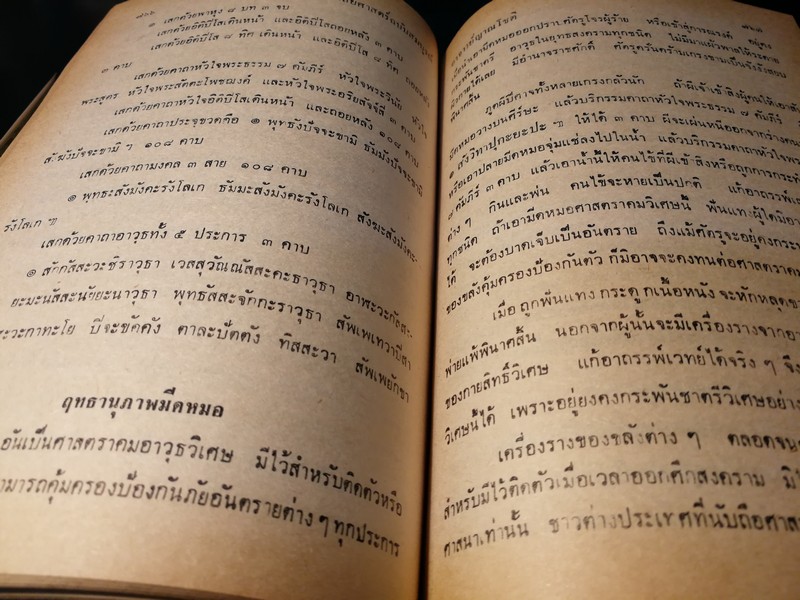 ๑ เสกด้วยพาหุง ๘ บท ๓ จบ
เสกด้วยอิติปิโสเดินหน้า และอิติปิโสถอยหลัง ๓ คาบ
เสกด้วยอิติปิโส ๘ ทิศ เดินหน้า และอิติปิโส ๘ ทิศ ถอยหลัง
๓ คาบ
เสกด้วยคาถาหัวใจพระธรรม ๗ คัมภีร์ หัวใจพระวินัย หัวใจ
พระสูตร หัวใจพระสัตตะโพชฌงค์ และหัวใจพระอริยสัจจ์สี่ ๓ คาบ
เสกด้วยคาถาหัวใจอิติปิโสเดินหน้า และถอยหลัง ๑๐๘ คาบ
เสกด้วยคาถาประจุขวดคือ ๑ พุทธังปัจจะขามิ ธัมมังปัจจะขามิ
สังฆังปัจจะขามิ ๆ ๑๐๘ คาบ
เสกด้วยคาถามงคล ๓ สาย ๑๐๘ คาบ
๑ พุทธะสังมังคะรังโลเก ธัมมะสังมังคะรังโลเก สังฆะสังมังคะ-
รังโลเก ๚
เสกด้วยคาถาอาวุธทั้ง ๕ ประการ ๓ คาบ
๑ สักกัสสะวะชิราวุธา เวสสุวัณณัสสะคะธาวุธา อาฬะวะกัสสะ-
ยะมะนัสสะนัยยะนาวุธา พุทธัสสะจักกะราวุธา สัพเพเทวาปีสา
กาทะโย ปีจะขัคคัง ตาละปัตตัง ทิสสะวา สัพเพยักขา
ฤทธานุภาพมีดหมอ
อันเป็นศาสตราคมอาวุธวิเศษ มีไว้สำหรับติดตัวหรือ
สามารถคุ้มครองป้องกันภัยอันตรายต่าง ๆ ทุกประการ
มีดหมอออกปราบศัตรูโจรผู้ร้าย หรือเข้าสู่การณรงค์
อาวุธในยุทธสงครามทุกชนิด
มีอำนาจราชศักดิ์
ภูตผีปีศาจทั้งหลายเกรงกลัวนัก ถ้าผีเจ้าเข้าสิง
มีดหมอวางบนศีร์ษะ แล้วบริกรรมคาถาหัวใจพระธรรม ๗ คัมภีร์
๑ สังวิทาปุกะยะปะ ๚ ให้ได้ ๓ คาบ ผีจะเผ่นหนีออกจากร่างคน
หรือเอาปลายมีดหมอจุ่มแช่ลงไปในน้ำ แล้วบริกรรมคาถาหัวใจพระ
๗ คัมภีร์ ๓ คาบ แล้วเอาน้ำนี้ให้คนไข้ที่ผีเข้าสิงหรือถูกการกระทำ
ต่าง ๆ กินและพ่น คนไข้จะหายเป็นปกติ แก้อาถรรพ์
ทุกชนิด ถ้าเอามีดหมอศาสตราคมวิเศษนี้ ฟันแทงผู้ใดมิอาจ
ได้ จะต้องบาดเจ็บเป็นอันตราย ถึงแม้ศัตรูจะอยู่คงกระ
ของขลังคุ้มครองป้องกันตัว ก็มิอาจจะคงทนต่อศาสตราคม
เมื่อถูกฟันแทง กระดูกเนื้อหนัง จะหักหลุด
พ่ายแพ้พินาศสิ้น นอกจากผู้นั้นจะมีเครื่องรางจาก
ของกายสิทธิ์วิเศษ แก้อาถรรพ์เวทย์ได้จริง ๆ จึง
วิเศษนี้ได้ เพราะอยู่ยงคงกระพันชาตรีวิเศษอย่าง
เครื่องรางของขลังต่าง ๆ ตลอดจน
สำหรับมีไว้ติดตัวเมื่อเวลาออกศึกสงคราม มิ
ศาสนาเท่านั้น ชาวต่างประเทศที่นับถือศาส